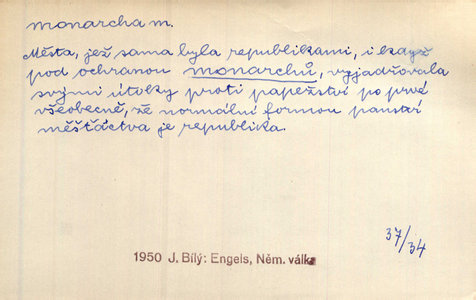 monarcha m.
Města, jež sama byla republikami, i když
pod ochranou monarchů, vyjadřovala
svými útoky proti papežství po prvé
všeobecně, že normální formou panství
měšťáctva je republika.
37/34
1950 J. Bílý: Engels, Něm. válka